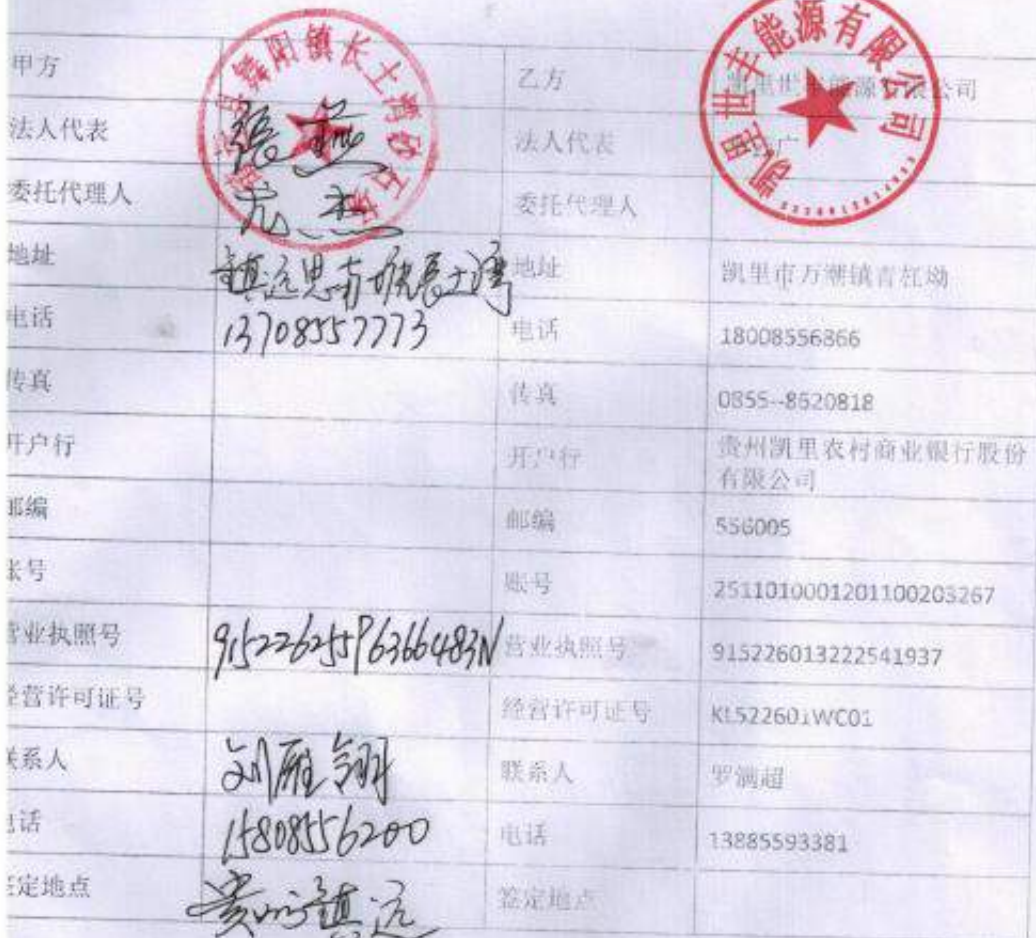 甲方 乙方 凯里世丰能源有限公司
法人代表 张 法人代表 广
委托代理人 龙杰 委托代理人
地址 镇远思南坡长土湾 地址 凯里市万潮镇青杠坳
电话 13708557773 电话 18008556866
传真 传真 0855--8520818
开户行 开户行 贵州凯里农村商业银行股份
有限公司
邮编 邮编 556005
账号 账号 2511010001201100203267
营业执照号 营业执照号 915226013222541937
经营许可证号 经营许可证号 KL522601WC01
联系人 刘雁翎 联系人 罗满超
电话 15808556200 电话 13885593381
签定地点 贵州镇远 签定地点
阳镇长土湾砂石
凯里世丰能源有限公司